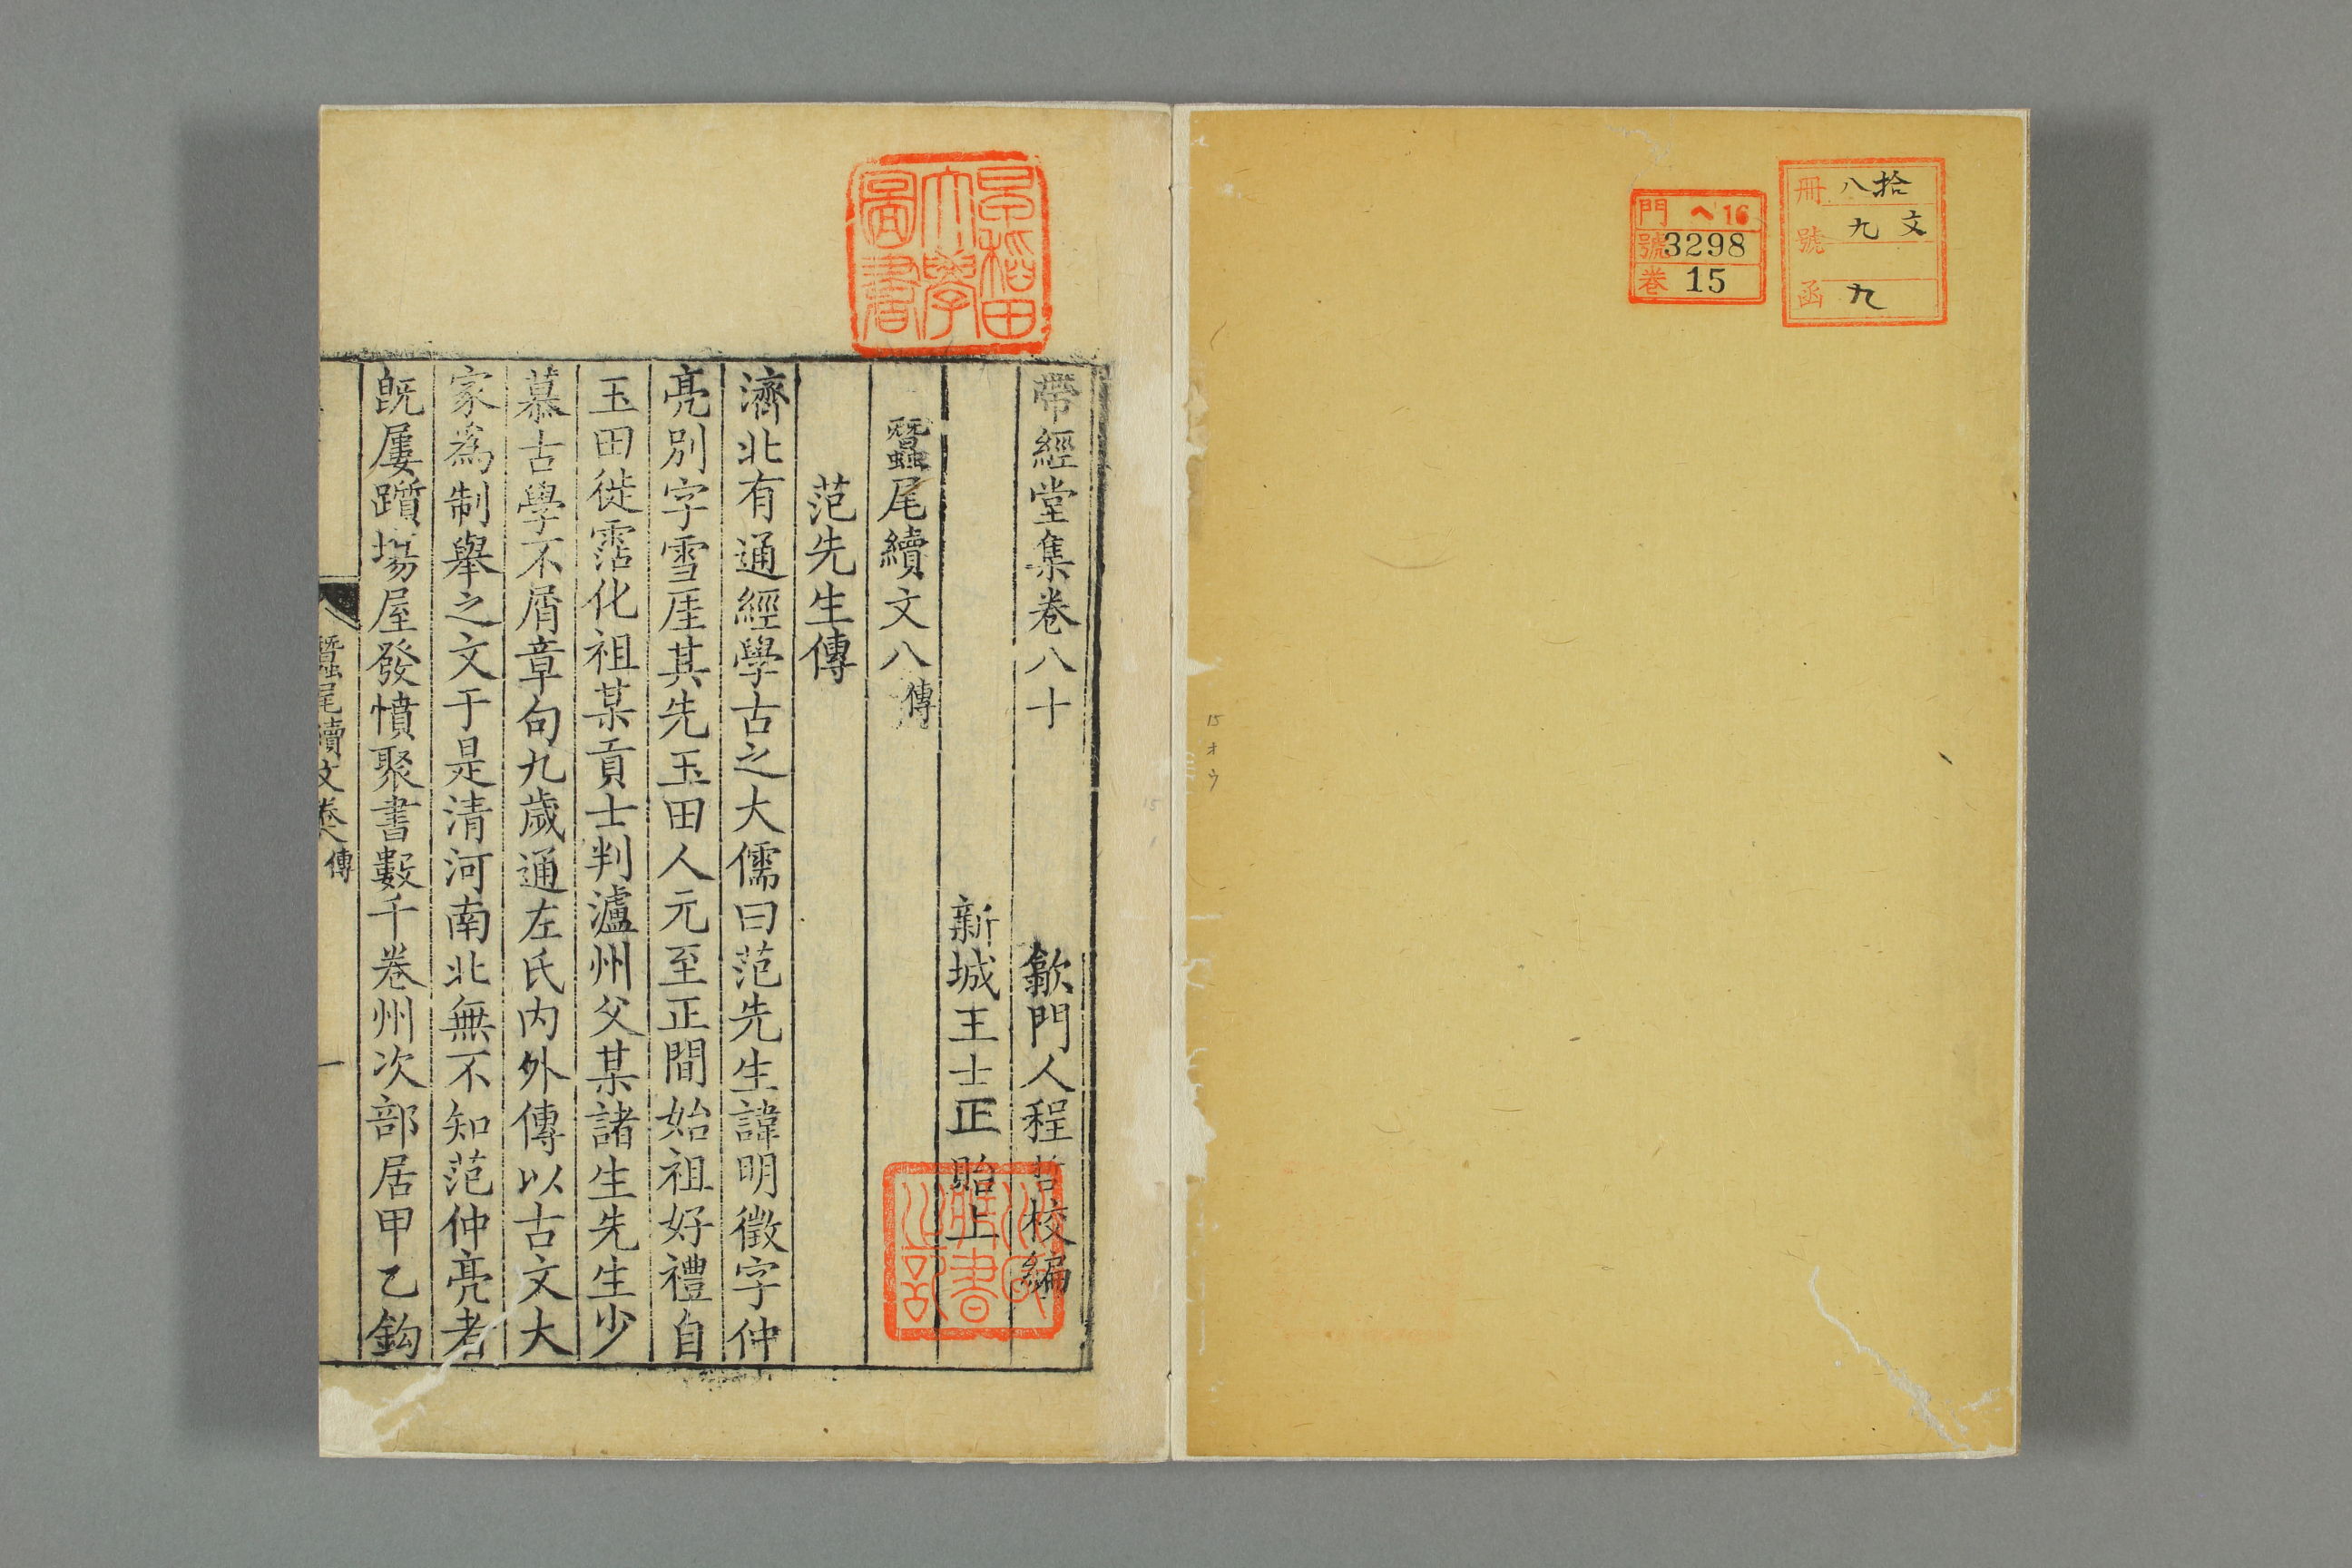 冊 八拾
號 九 文
函 九
門 ヘ16
號 3298
卷 15
早稻田
大學
圖書
帶經堂集卷八十
歙門人程哲校編
新城王士正貽上
蠶尾續文八 傳
范先生傳
濟北有通經學古之大儒曰范先生諱明徵字仲
亮別字雪厓其先玉田人元至正間始祖好禮自
玉田徙霑化祖某貢士判瀘州父某諸生先生少
慕古學不屑章句九歲通左氏內外傳以古文大
家為制舉之文于是清河南北無不知范仲亮者
旣屢躓場屋發憤聚書數千卷州次部居甲乙鈎
蠶尾續文卷八 傳
一
15
オ
ウ